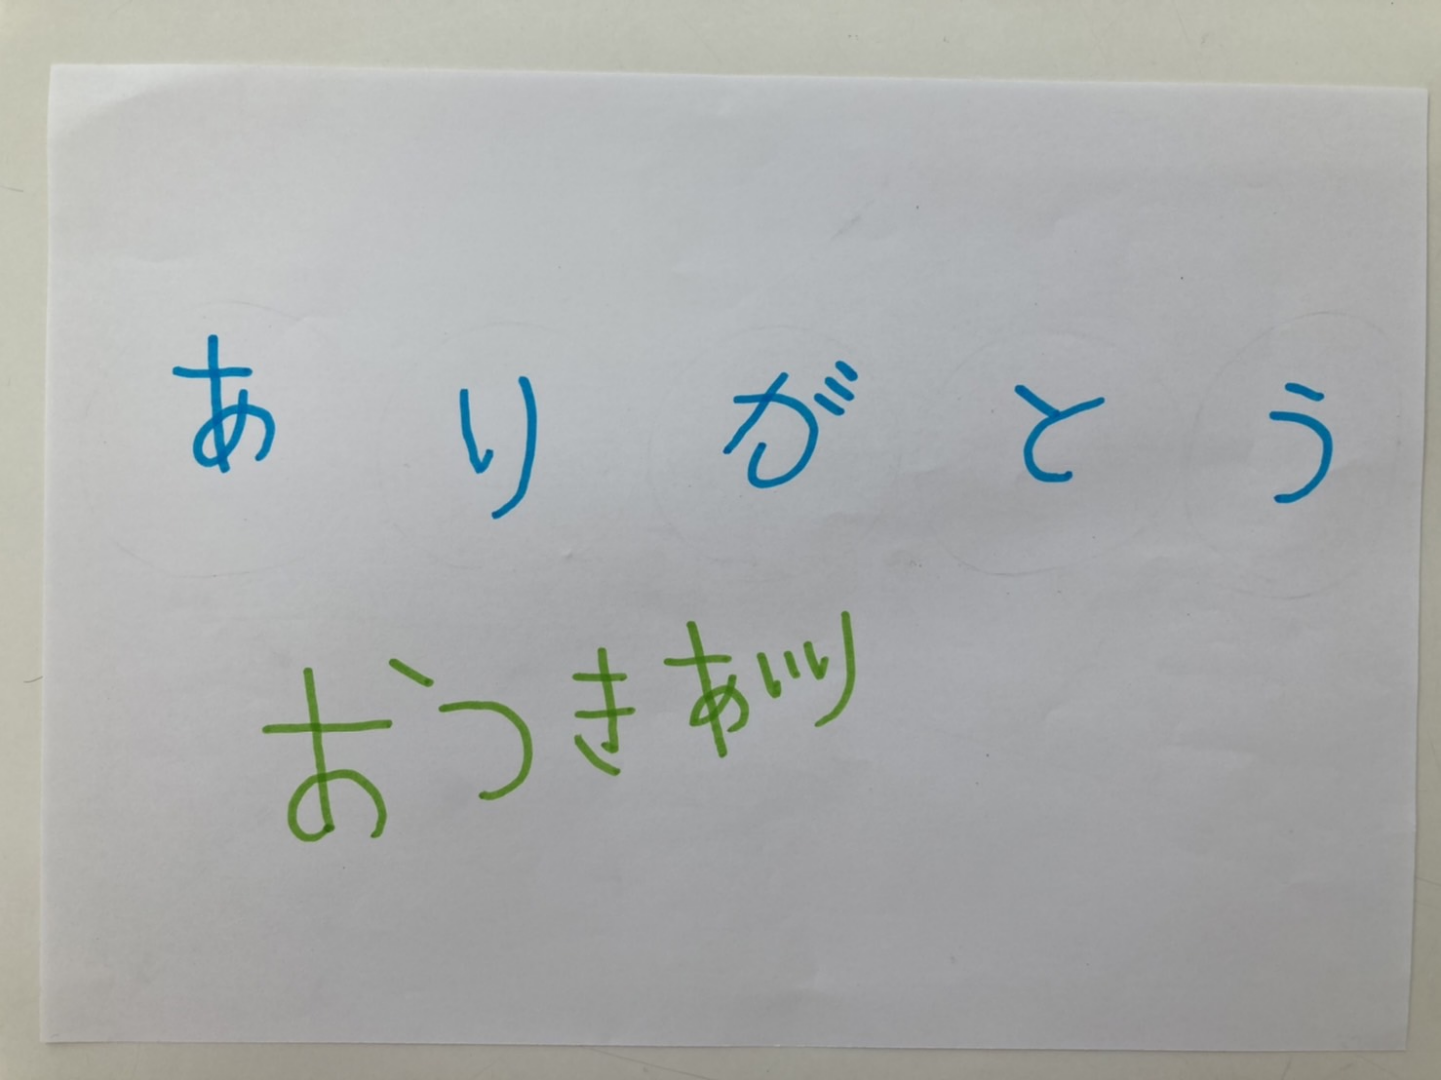 ありがとう
おつきあいり